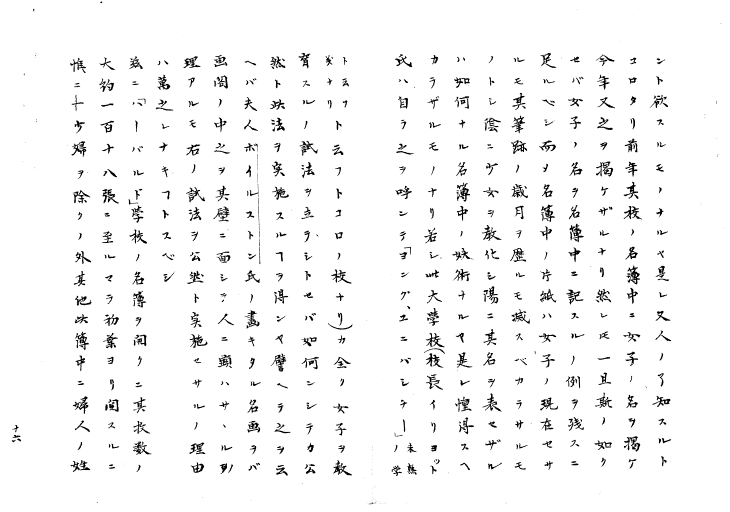 ント欲スルモノナルヤ是レ又人ノ了知スルト
コロタリ前年其校ノ名簿中ニ女子ノ名ヲ掲ケ
今年又之ヲ掲ケザルナリ然レモ一旦斯ノ如ク
セバ女子ノ名ヲ名簿中ニ記スルノ例ヲ残スニ
足ルベシ而メ名簿中ノ片紙ハ女子ノ現在セサ
ルモ其筆跡ノ歳月ヲ歴ルモ滅スベカラサルモ
ノトシ陰ニ少女ヲ教化シ陽ニ其名ヲ表セザル
ハ如何ナル名簿中ノ妖術ナルヤ是レ惶得スヘ
カラザルモノナリ若シ此大學校(校長イリヨット
氏ハ自ラ之ヲ呼ンテ「ヨング、ユニバシチー」ノ
未熟
学
ト云フトコロノ校ナリ)カ全ク女子ヲ教
育スルノ試法ヲ立テシトセバ如何ンシテカ公
然ト此法ヲ実施スルヿヲ得ンヤ譬ヘテ之ヲ云
ヘバ夫人ボイルストン氏ノ畫キタル名画ヲバ
画閣ノ中之ヲ其壁ニ面シテ人ニ顕ハサヾル
理アルモ右ノ試法ヲ公然ト実施セサルノ理由
ハ萬之レナキヿトスベシ
茲ニ「ハーバルド」學校ノ名簿ヲ閲クニ其枚数ノ
大約一百十八張ニ至ルマテ初葉ヨリ閲スルニ
惟ニ十少婦ヲ除クノ外其他此簿中ニ婦人ノ姓
十六